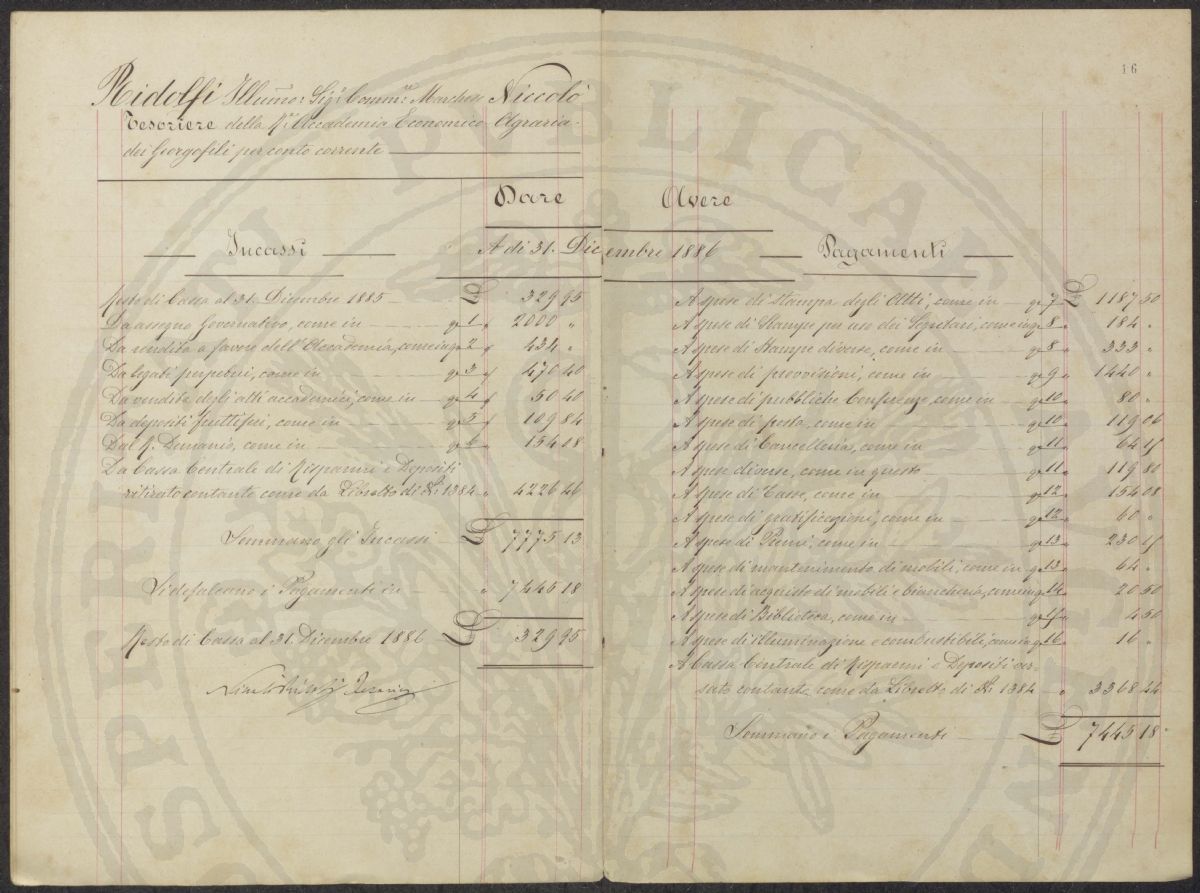 16
Ridolfi Illumo: Sigr. Commre. Marchese Niccolò
Tesoriere della Ra. Accademia Economico-Agraria
dei Georgofili per conto corrente
Dare Avere
Incassi A dì 31. Dicembre 1886 Pagamenti
Resto di Cassa al 31. Dicembre 1885 £ 329 95
Da assegno Governativo, come in 1 " 2000 "
Da rendita a favore dell'Accademia, come in 2 " 434 "
Da legati perpetui, come in 3 " 470 40
Da vendita degli atti accademici, come in 4 " 50 40
Da depositi fruttiferi, come in 5 " 109 84
Dal R. Demanio, come in 6 " 154 08
Da Cassa Centrale di Risparmi e Depositi
ritirato contante come da Libretto di No. 1384 " 4226 46
Sommano gli Incassi £ 7775 13
Si defalcano i Pagamenti in " 7445 18
Resto di Cassa al 31. Dicembre 1886 £ 329 95
Niccolò Ridolfi Tesoriere
A spese di stampa degli Atti, come in 7 £ 1187 50
A spese di Stampe per uso dei Segretari, come in 8 " 184 "
A spese di Stampe diverse, come in 8 " 333 "
A spese di provvisioni, come in 9 " 1440 "
A spese di pubbliche Conferenze, come in 10 " 80 "
A spese di posta, come in 10 " 119 06
A spese di Cancelleria, come in 11 " 64 15
A spese diverse, come in questo 11 " 119 80
A spese di Tasse, come in 12 " 154 08
A spese di gratificazioni, come in 12 " 60 "
A spese di Premi, come in 13 " 230 15
A spese di mantenimento di mobili, come in 13 " 64 "
A spese di acquisto di mobili e biancheria, come in 14 " 20 50
A spese di Biblioteca, come in 15 " 4 50
A spese di illuminazione e combustibili, come in 16 " 16 "
A Cassa Centrale di Risparmi e Depositi ver-
sato contante come da Libretto di No. 1384 " 3368 44
Sommano i Pagamenti £ 7445 18